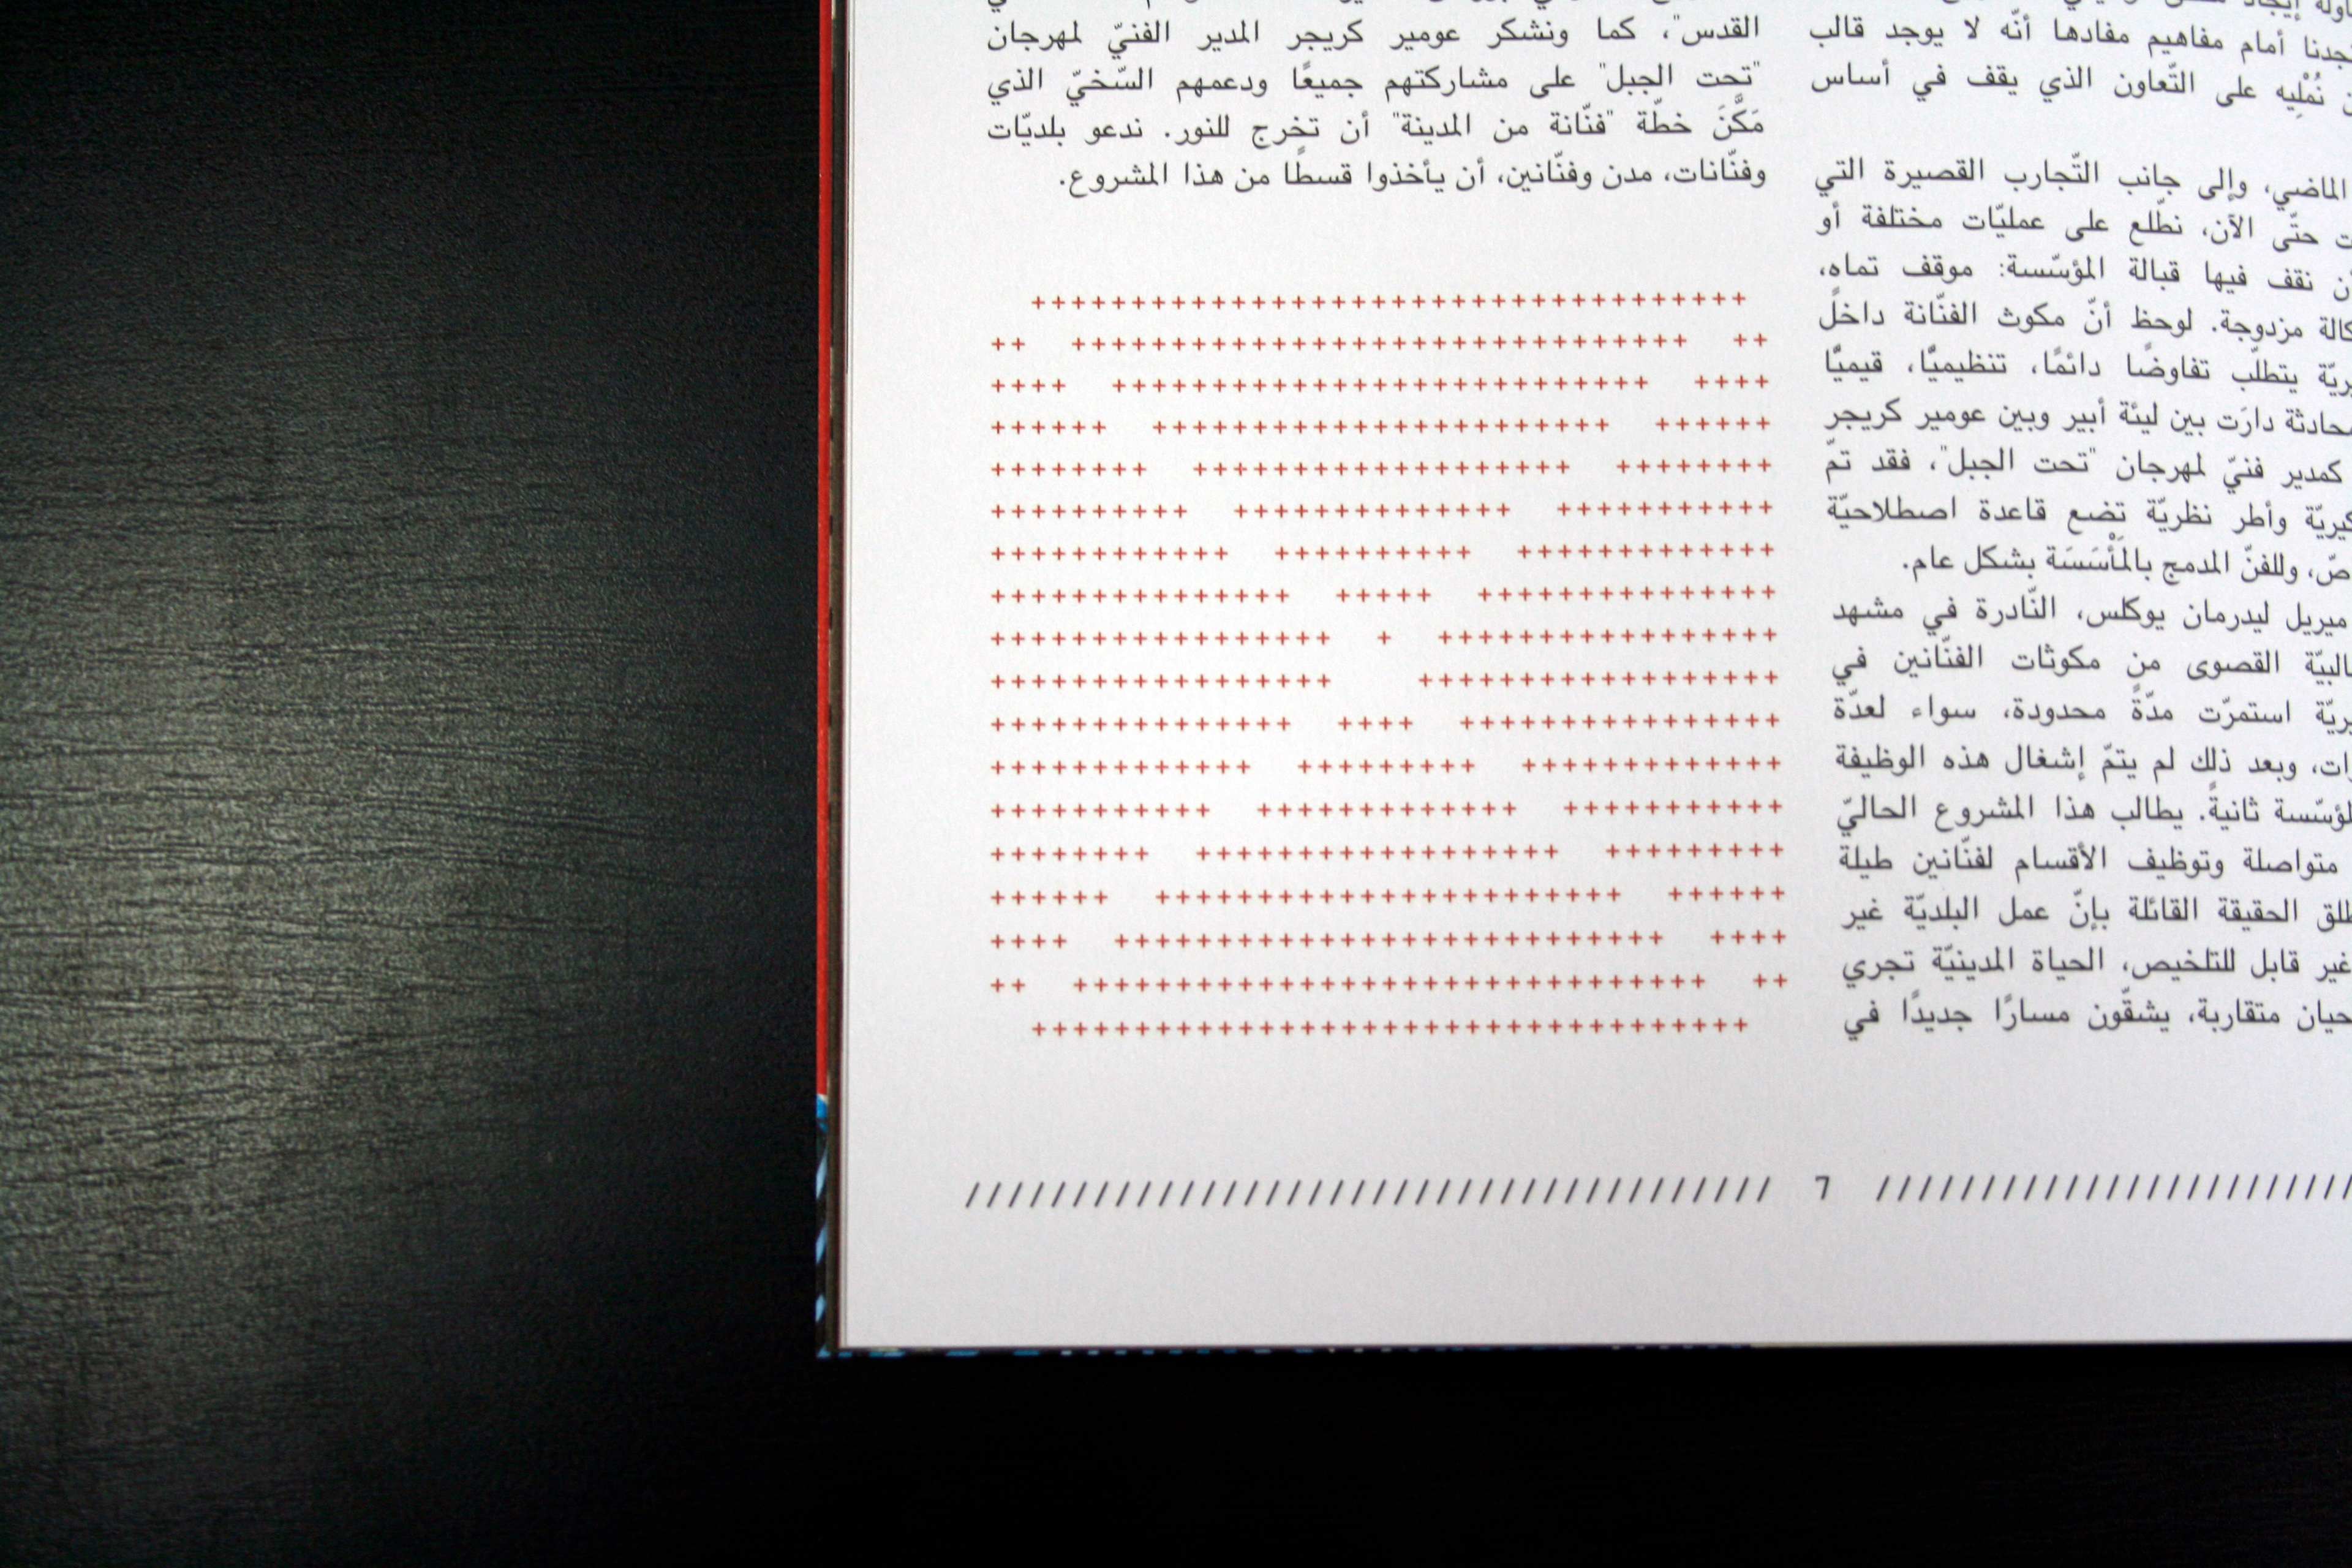 أمام مفاهيم مفادها أنّه لا يوجد قالب
نُمْلِيه على التّعاون الذي يقف في أساس
الماضي، وإلى جانب التّجارب القصيرة التي
حتّى الآن، نطّلع على عمليّات مختلفة أو
نقف فيها قبالة المؤسّسة: موقف تماهٍ،
مزدوجة. لوحظ أنّ مكوث الفنّانة داخل
يتطلّب تفاوضًا دائمًا، تنظيميًّا، قيميًّا
دارَت بين ليئة أبير وبين عومير كريجر
كمدير فنيّ لمهرجان "تحت الجبل"، فقد تمّ
وأطر نظريّة تضع قاعدة اصطلاحيّة
وللفنّ المدمج بالمَأْسَسَة بشكل عام.
ميريل ليدرمان يوكلس، النّادرة في مشهد
القصوى من مكوثات الفنّانين في
استمرّت مدّةً محدودة، سواء لعدّة
وبعد ذلك لم يتمّ إشغال هذه الوظيفة
ثانيةً. يطالب هذا المشروع الحاليّ
متواصلة وتوظيف الأقسام لفنّانين طيلة
الحقيقة القائلة بإنّ عمل البلديّة غير
غير قابل للتلخيص، الحياة المدينيّة تجري
متقاربة، يشقّون مسارًا جديدًا في
القدس"، كما ونشكر عومير كريجر المدير الفنيّ لمهرجان
"تحت الجبل" على مشاركتهم جميعًا ودعمهم السّخيّ الذي
مَكَّنَ خطّة "فنّانة من المدينة" أن تخرج للنور. ندعو بلديّات
وفنّانات، مدن وفنّانين، أن يأخذوا قسطًا من هذا المشروع.
٦